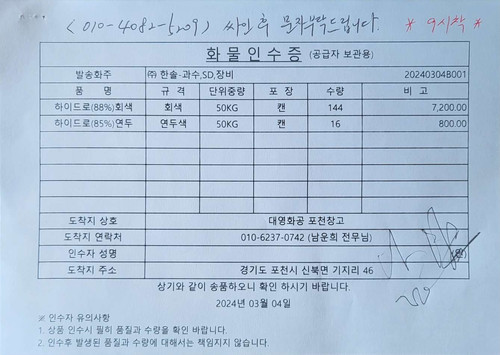 (010-4082-5209) 싸인 후 문자부탁드립니다. * 9시착 *
화물인수증 (공급자 보관용)
발송화주 ㈜ 한솔-과수,SD,장비 20240304B001
품 명 규 격 단위중량 포 장 수량 비 고
하이드로(88%)회색 회색 50KG 캔 144 7,200.00
하이드로(85%)연두 연두색 50KG 캔 16 800.00
도착지 상호 대영화공 포천창고
도착지 연락처 010-6237-0742 (남운희 전무님)
인수자 성명 (인)
도착지 주소 경기도 포천시 신북면 기지리 46
상기와 같이 송품하오니 확인 하시기 바랍니다.
2024년 03월 04일
※ 인수자 유의사항
1. 상품 인수시 필히 품질과 수량을 확인 바랍니다.
2. 인수후 발생된 품질과 수량에 대해서는 책임지지 않습니다.